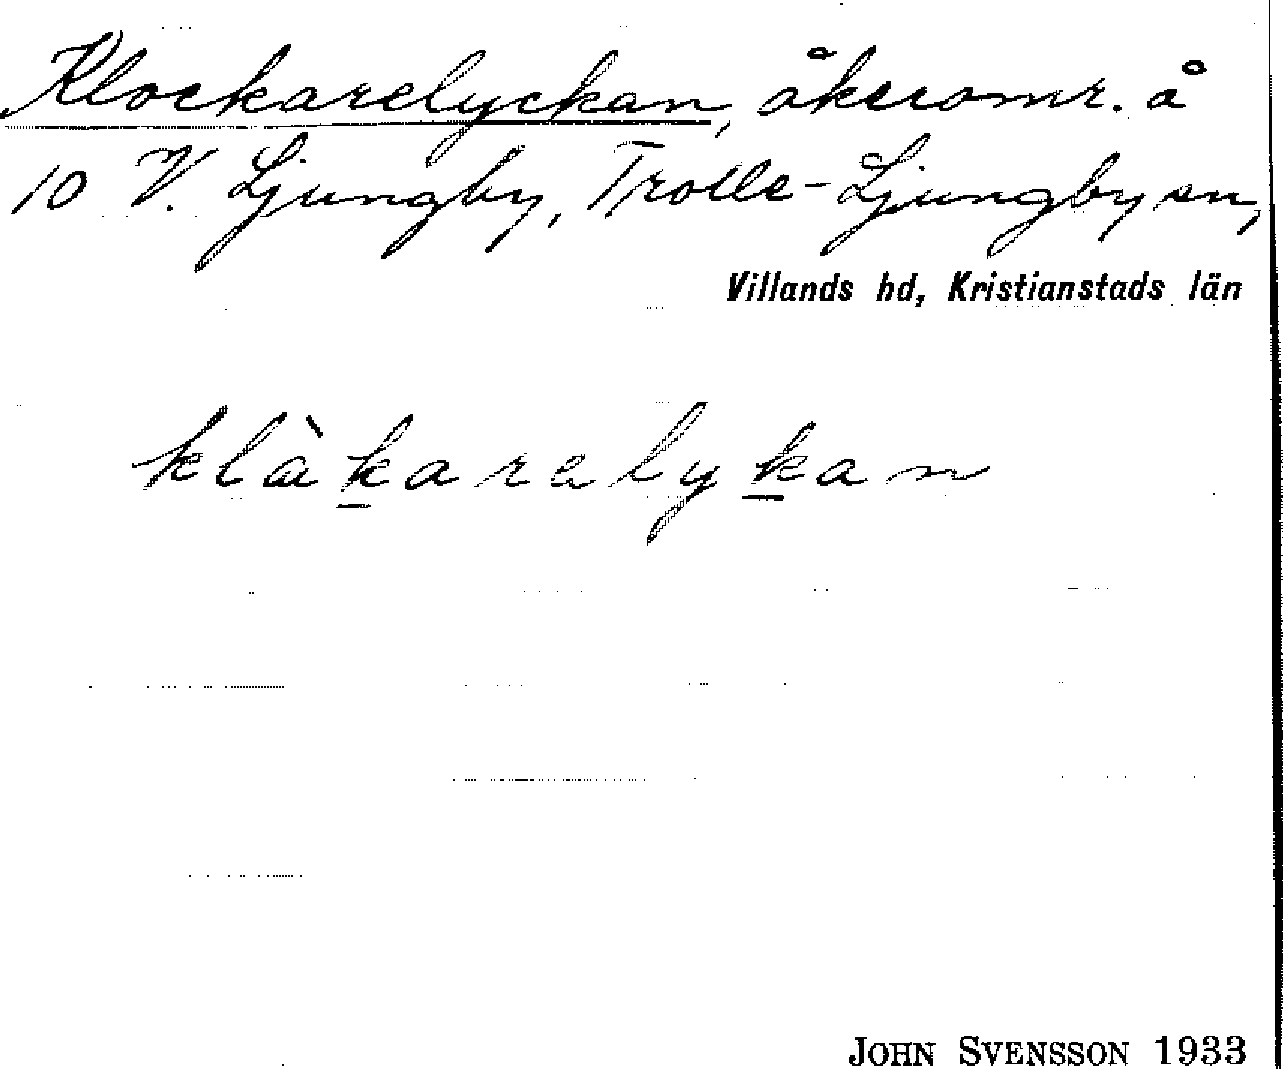 Klockarelyckan, åkeromr. å
10 V. Ljungby, Trolle-Ljungby sn,
Villands hd, Kristianstads län
klàk̲arelyk̲an
JOHN SVENSSON 1933